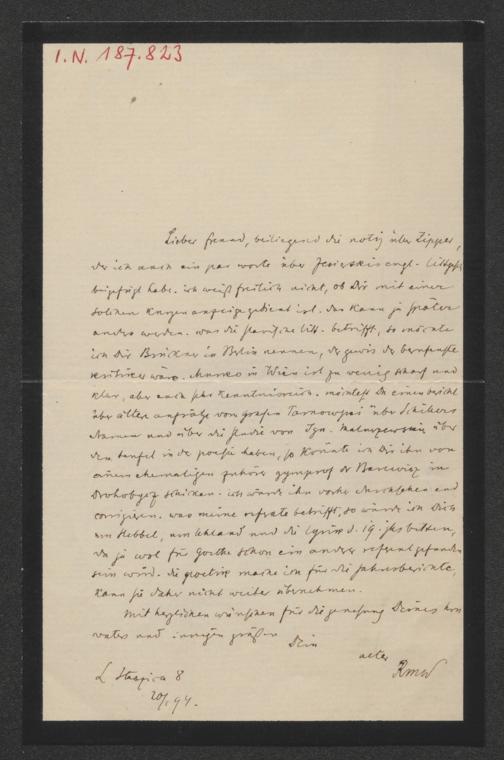 I.N. 187.823
Lieber freund, beiliegend die notiz über Zipper,
der ich auch ein par worte über Jesierskis engl. littgesch
beigefügt habe. ich weiß freilich nicht, ob Dir mit einer
solchen kurzen anzeige gedient ist. das kann ja später
anders werden. was die slavische litt. betrifft, so möchte
ich Dir Brückner in Berlin nennen, der gewis der berufenste
kritiker wäre. Murko in Wien ist zu wenig scharf und
klar, aber auch sehr kenntnisreich. möchtest Du einen bericht
über ältere aufsätze von grafen Tarnowski über Schillers
dramen und über die studie von Ign. Matuszewski über
den teufel in der poesie haben, so könnte ich Dir ihn von
einem ehemaligen zuhörer gymprof dr Barewicz in
Drohobycz schicken. ich würde ihn vorher durchsehen und
corrigieren. was meine referate betrifft, so würde ich Dich
um Hebbel, um Uhland und die lyrik d. 19. jhs bitten,
da ja wol für Goethe schon ein anderer referent gefunden
sein wird. die poetik mache ich für die jahresberichte,
kann sie daher nicht weiter übernehmen.
Mit herzlichen wünschen für die genesung Deines hern
vaters und innigen grüßen
Dein
alter
RMW
L Staszica 8
20/ 94.